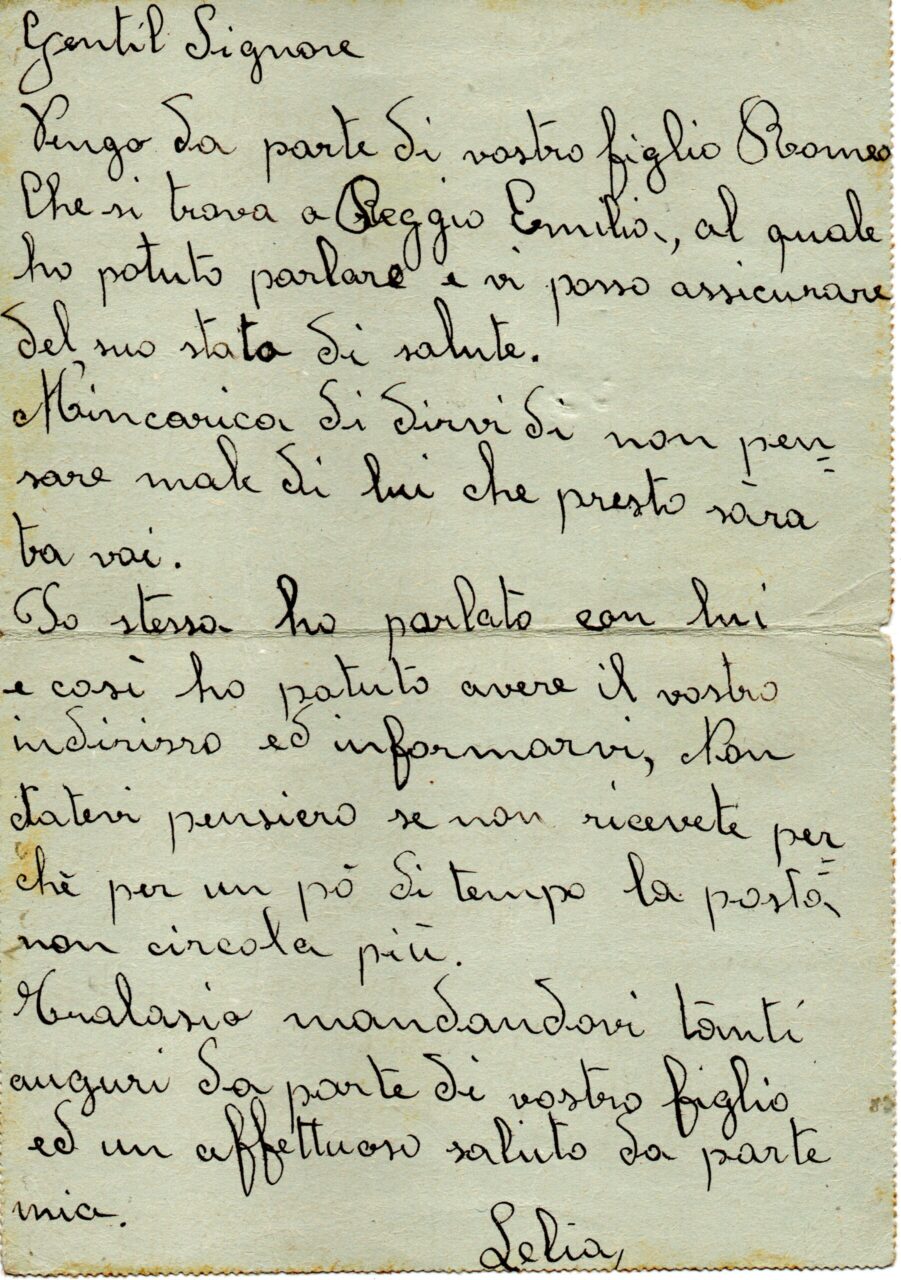 Gentil Signore
Vengo da parte di vostro figlio Romeo
Che si trova a Reggio Emilia, al quale
ho potuto parlare e vi posso assicurare
del suo stato di salute.
Mincarica di dirvi di non pen=
sare male di lui che presto sàra
tra voi.
Io stessa ho parlato con lui
e così ho potuto avere il vostro
indirisso ed informarvi, Non
datevi pensiero se non ricevete per=
chè per un pò di tempo la posta
non circola più.
Tralasio mandandovi tanti
auguri da parte di vostro figlio
ed un affettuoso saluto da parte
mia.
Lelia,